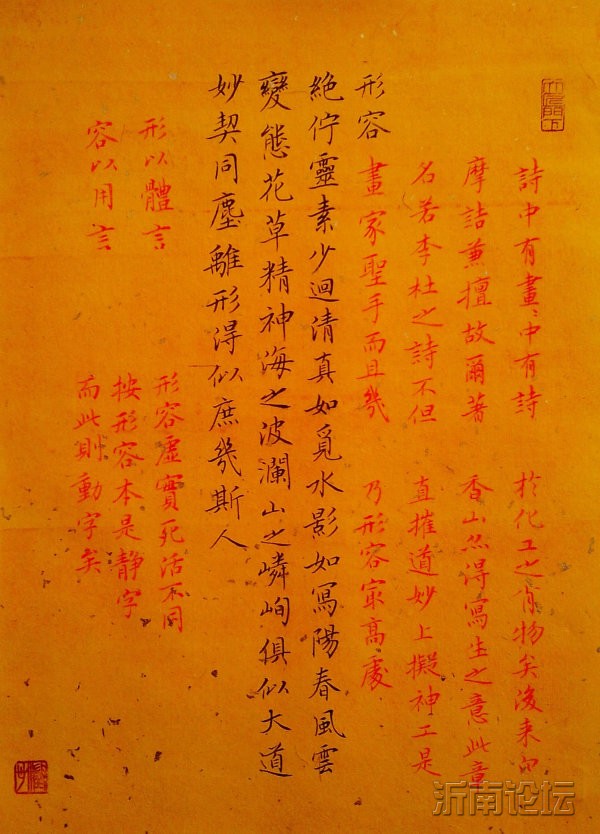 詩中有畫〻中有詩
摩詰兼擅故爾著
名若李杜之詩不但
畫家聖手而且幾
於化工之肖物矣後来
香山亦得寫生之意此章
直摧道妙上擬神工是
乃形容最高處
形容
絶佇靈素少迴清真如覓水影如寫陽春風雲
變態花草精神海之波瀾山之嶙峋俱似大道
妙契同塵離形得似庶幾斯人
形以體言
容以用言
形容虛實死活不同
按形容本是靜字
而此則動字矣
沂南论坛